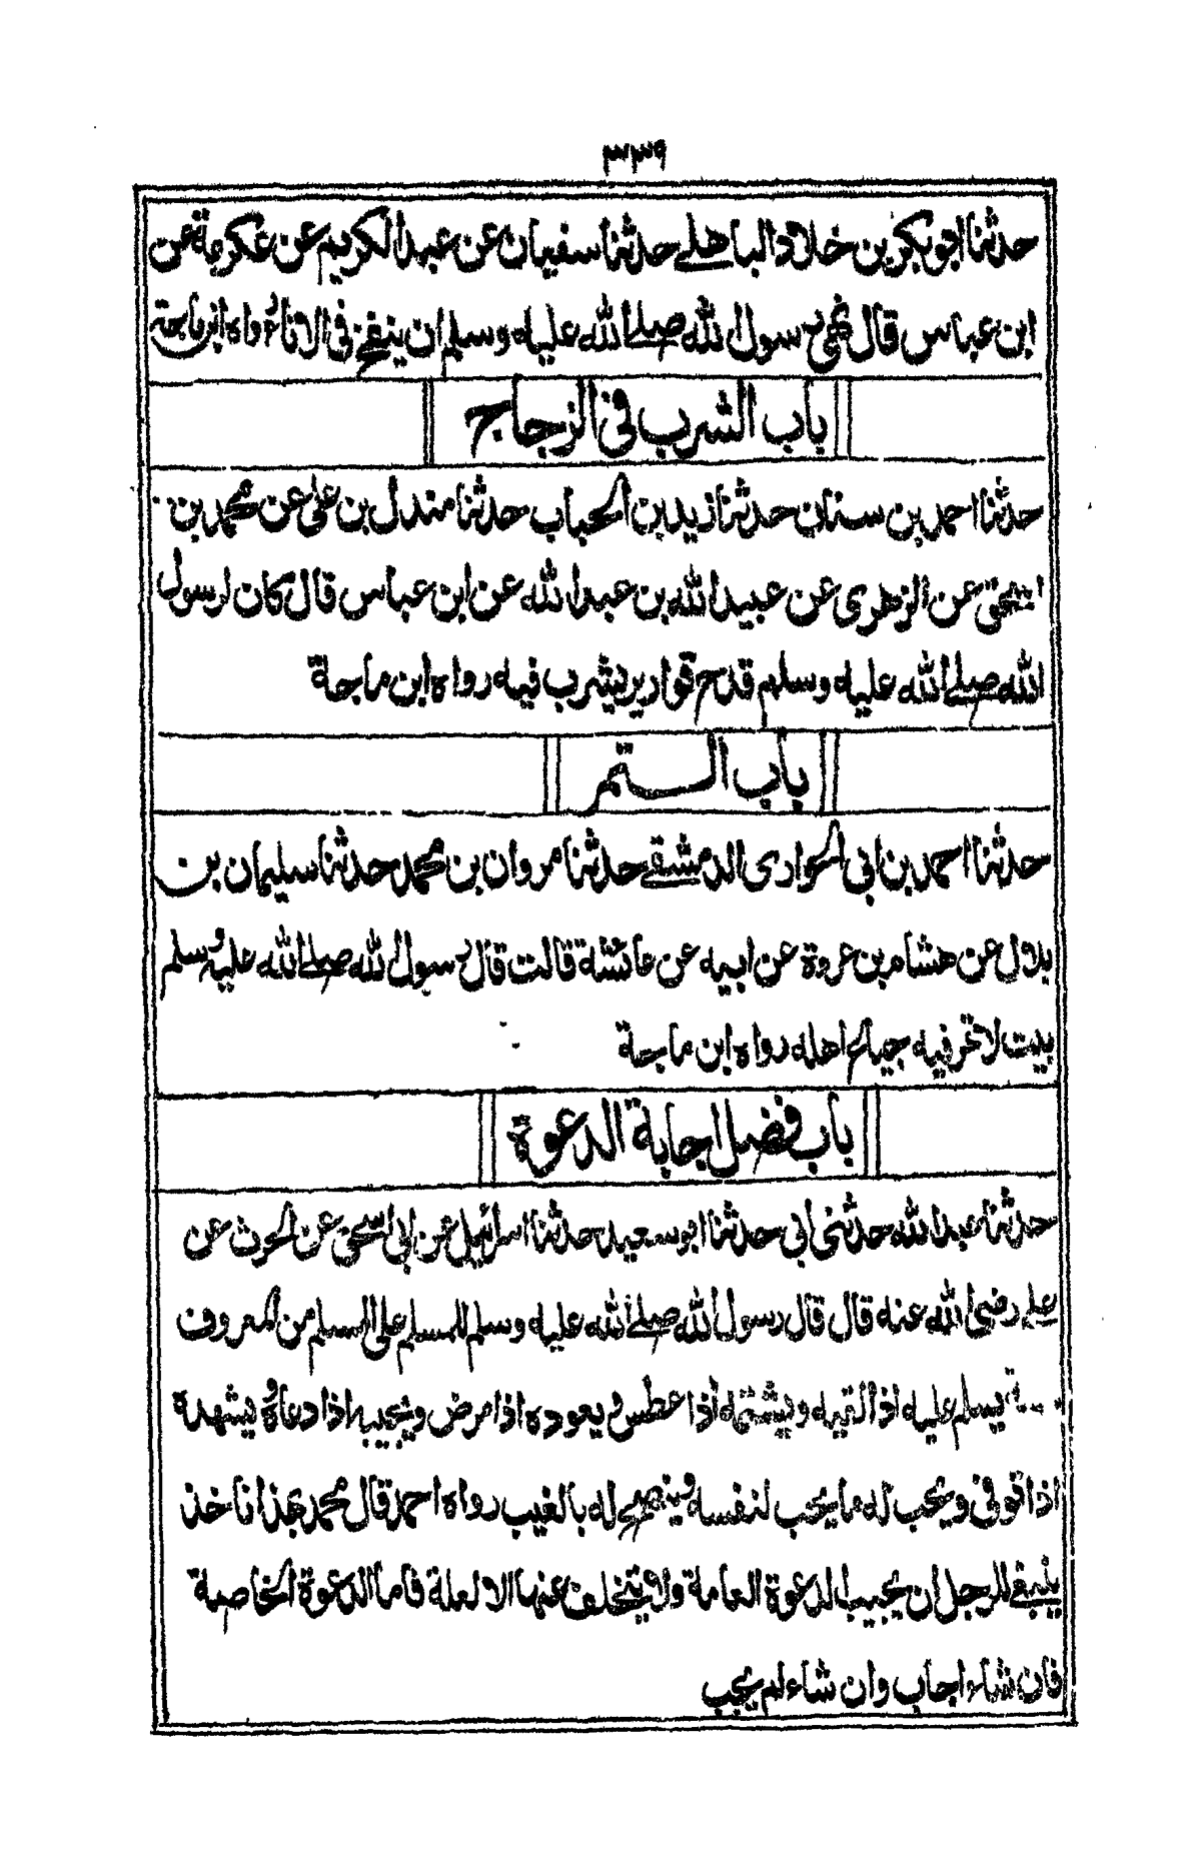 ٣٣٩
حدثنا ابو بكر بن خلاد الباهلے حدثنا سفيان عن عبد الكريم عن عكرمة عن
ابن عباس قال نهى رسول الله صلے الله عليه وسلم ان ينفخ فى الاناء رواه ابن ماجة
باب الشرب فى الزجاج
حدثنا احمد بن سنان حدثنا زيد بن الحباب حدثنا مندل بن على عن محمد بن
اسحق عن الزهرى عن عبيد الله بن عبد الله عن ابن عباس قال كان لرسول
الله صلے الله عليه وسلم قدح قوارير يشرب فيه رواه ابن ماجة
باب التمر
حدثنا احمد بن ابى الحوارى الدمشقے حدثنا مروان بن محمد حدثنا سليمان بن
بلال عن هشام بن عروة عن ابيه عن عائشة قالت قال رسول الله صلے الله عليه وسلم
بيت لا تمر فيه جياع اهله رواه ابن ماجة
باب فضل اجابة الدعوة
حدثنا عبد الله حدثنى ابى حدثنا ابو سعيد حدثنا اسرائيل عن ابى اسحق عن الحرث عن
علے رضى الله عنه قال قال رسول الله صلے الله عليه وسلم للمسلم على المسلم من المعروف
يسلم عليه اذا لقيه ويشمته اذا عطس ويعوده اذا مرض ويجيبه اذا دعاه ويشهده
اذا توفى ويحب له ما يحب لنفسه وينصح له بالغيب رواه احمد قال محمد بهذا ناخذ
ينبغے للرجل ان يجيب الدعوة العامة ولا يتخلف عنها الا لعلة فاما الدعوة الخاصة
فان شاء اجاب وان شاء لم يجب